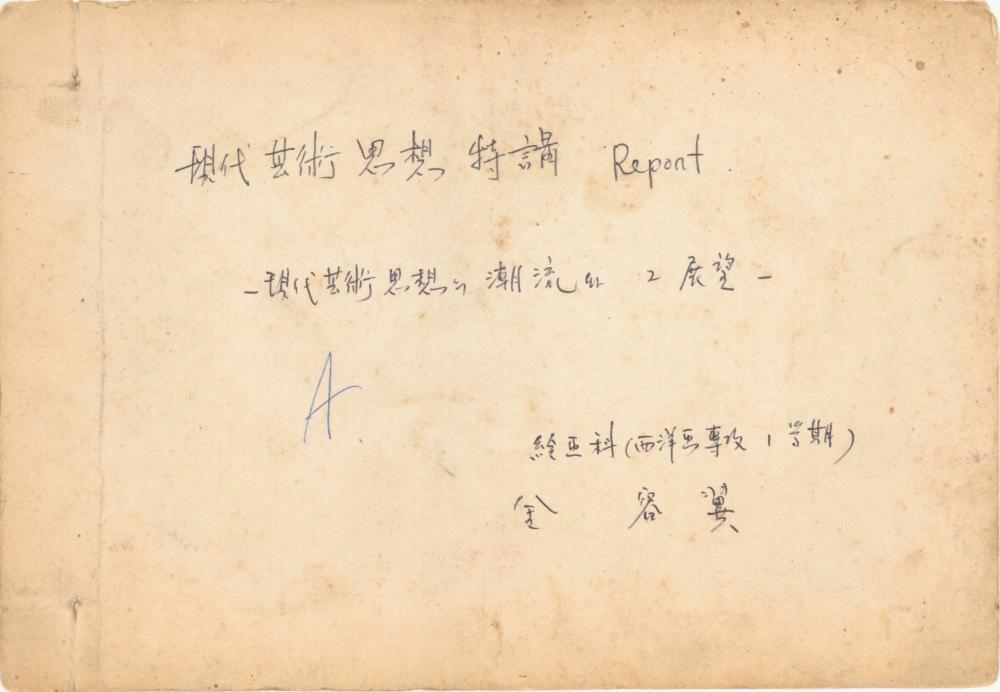 現代芸術思想 特講 Report.
-現代芸術思想의 潮流와 그 展望-
A.
絵画科(西洋画専攻 1学期)
金 容翼